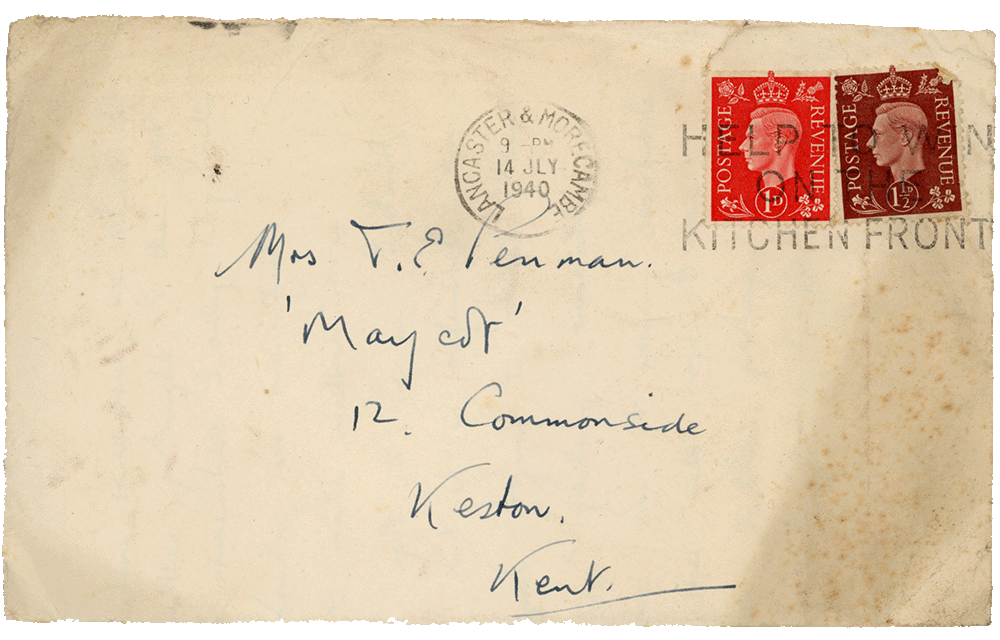 LANCASTER & MORECAMBE
9 - PM
14 JLY
1940
HELP TO WIN
ON THE
KITCHEN FRONT
POSTAGE REVENUE
1D
POSTAGE REVENUE
1½D
Mrs T. E Penman.
'Maycot'
12. Commonside
Keston.
Kent.